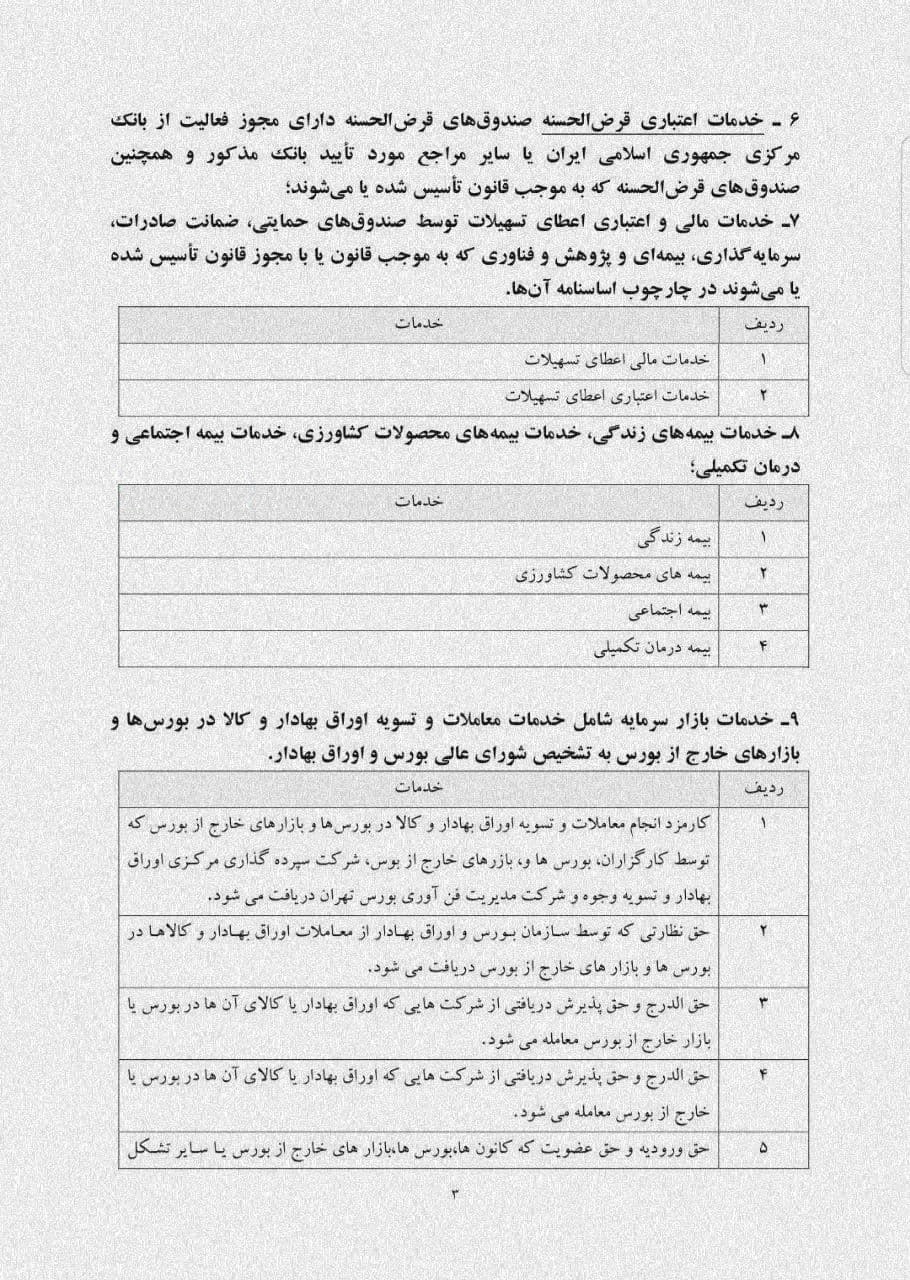 ۶ ـ خدمات اعتباری قرض‌الحسنه صندوق‌های قرض‌الحسنه دارای مجوز فعالیت از بانک
مرکزی جمهوری اسلامی ایران یا سایر مراجع مورد تأیید بانک مذکور و همچنین
صندوق‌های قرض‌الحسنه که به موجب قانون تأسیس شده یا می‌شوند؛
۷ـ خدمات مالی و اعتباری اعطای تسهیلات توسط صندوق‌های حمایتی، ضمانت صادرات،
سرمایه‌گذاری، بیمه‌ای و پژوهش و فناوری که به موجب قانون یا با مجوز قانون تأسیس شده
یا می‌شوند در چارچوب اساسنامه آن‌ها.
ردیف خدمات
۱ خدمات مالی اعطای تسهیلات
۲ خدمات اعتباری اعطای تسهیلات
۸ـ خدمات بیمه‌های زندگی، خدمات بیمه‌های محصولات کشاورزی، خدمات بیمه اجتماعی و
درمان تکمیلی؛
ردیف خدمات
۱ بیمه زندگی
۲ بیمه های محصولات کشاورزی
۳ بیمه اجتماعی
۴ بیمه درمان تکمیلی
۹ـ خدمات بازار سرمایه شامل خدمات معاملات و تسویه اوراق بهادار و کالا در بورس‌ها و
بازارهای خارج از بورس به تشخیص شورای عالی بورس و اوراق بهادار.
ردیف خدمات
۱ کارمزد انجام معاملات و تسویه اوراق بهادار و کالا در بورس‌ها و بازارهای خارج از بورس که
توسط کارگزاران، بورس ها و، بازرهای خارج از بوس، شرکت سپرده گذاری مرکزی اوراق
بهادار و تسویه وجوه و شرکت مدیریت فن آوری بورس تهران دریافت می شود.
۲ حق نظارتی که توسط سازمان بورس و اوراق بهادار از معاملات اوراق بهادار و کالاها در
بورس ها و بازار های خارج از بورس دریافت می شود.
۳ حق الدرج و حق پذیرش دریافتی از شرکت هایی که اوراق بهادار یا کالای آن ها در بورس یا
بازار خارج از بورس معامله می شود.
۴ حق الدرج و حق پذیرش دریافتی از شرکت هایی که اوراق بهادار یا کالای آن ها در بورس یا
خارج از بورس معامله می شود.
۵ حق ورودیه و حق عضویت که کانون ها،بورس ها،بازار های خارج از بورس یا سایر تشکل
۳